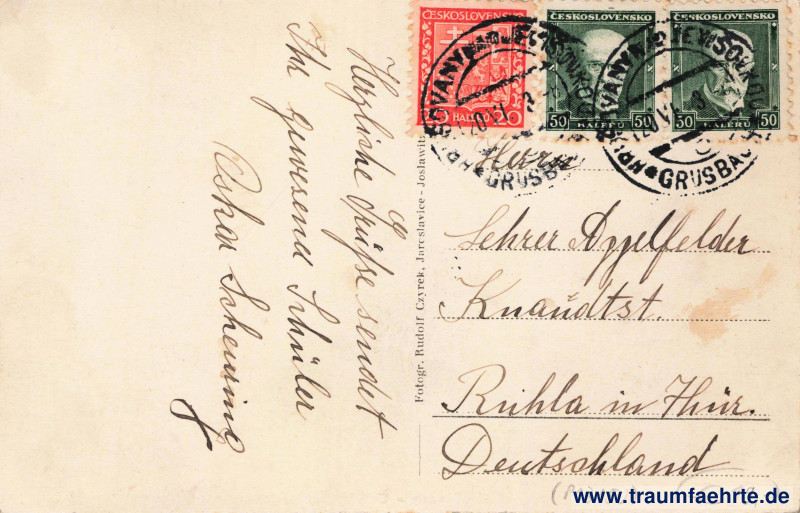 Herzliche Grüße sendet
Ihr gewesend Schüler
Oskar Scheuring
Fotogr. Rudolf Czyrek, Jaroslavice - Joslawitz
ČESKOSLOVENSKO
20 HALÉŘŮ 20
ČESKOSLOVENSKO
50 HALÉŘŮ 50
ČESKOSLOVENSKO
50 HALÉŘŮ 50
GRUSBA
GRUSBAC
Herrn
Lehrer Appelfelder
Knaudtst.
Ruhla in Thür.
Deutschland
www.traumfaehrte.de